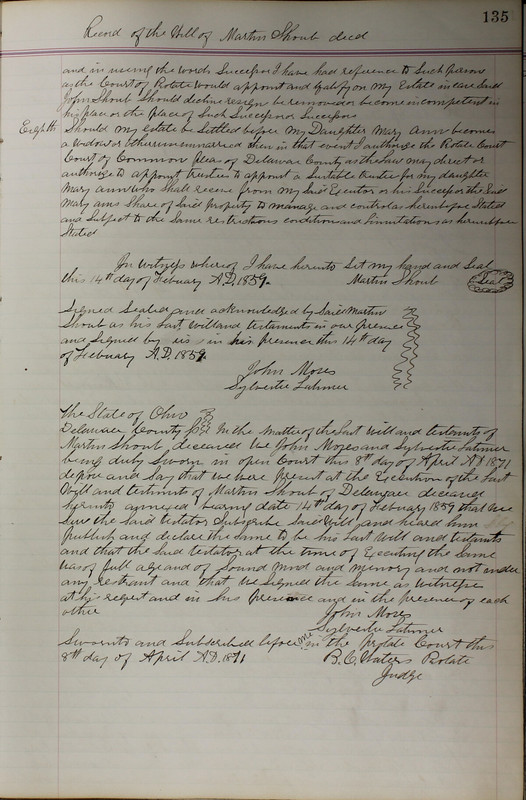 135
Record of the Will of Martin Shoub decd
and in using the words Successor I have had reference to Such person
as the Court of Probate would appoint and qualify on my Estate in case Said
John Shoub Should decline resign be removed or become incompetent in
his place or the place of Such Successor or Successors
Eighth Should my estate be Settled before my Daughter Mary Ann becomes
a widow or otherwise unmarried then in that event I authorize the Probate Court
Court of Common Pleas of Delaware County as the Law may direct or
authorize to appoint trustees to appoint a Suitable trustee for my daughter
Mary Ann who Shall receive from my Said Executor or his Successor the Said
Mary anns Share of Said property to manage and control as hereinbefore Stated
and Subject to the Same restrictions conditions and limitations as hereinbefore
Stated
In Witness whereof I have hereunto Set my hand and Seal
this 14th day of Febuary A.D. 1859. Martin Shoub Seal
Signed Sealed and acknowledged by Said Martin
Shoub as his Last Will and testament in our presence
and Signed by us in his presence this 14th day
of Febuary A.D. 1859.
John Moses
Sylvester Latimer
The State of Ohio
Delaware County SS In the Matter of the Last Will and testament of
Martin Shoub, deceased We John Moses and Sylvester Latimer
being duly Sworn in open Court this 8th day of April A.D. 1871
depose and Say that we were present at the Execution of the Last
Will and testament of Martin Shoub of Delaware deceased
hereunto annexed bearing date 14th day of Febuary 1859 that we
Saw the Said testator Subscribe Said Will and heard him
publish and declare the Same to be his Last Will and testament
and that the Said testator at the time of Executing the Same
was of full age and of Sound Mind and Memory and not under
any restraint and that we Signed the Same as Witnesses
at his request and in his presence and in the presence of each
other John Moses
Sylvester Latimer
Sworn to and Subscribed before me in the Probate Court this
8th day of April A.D. 1871 B. C. Waters Probate
Judge